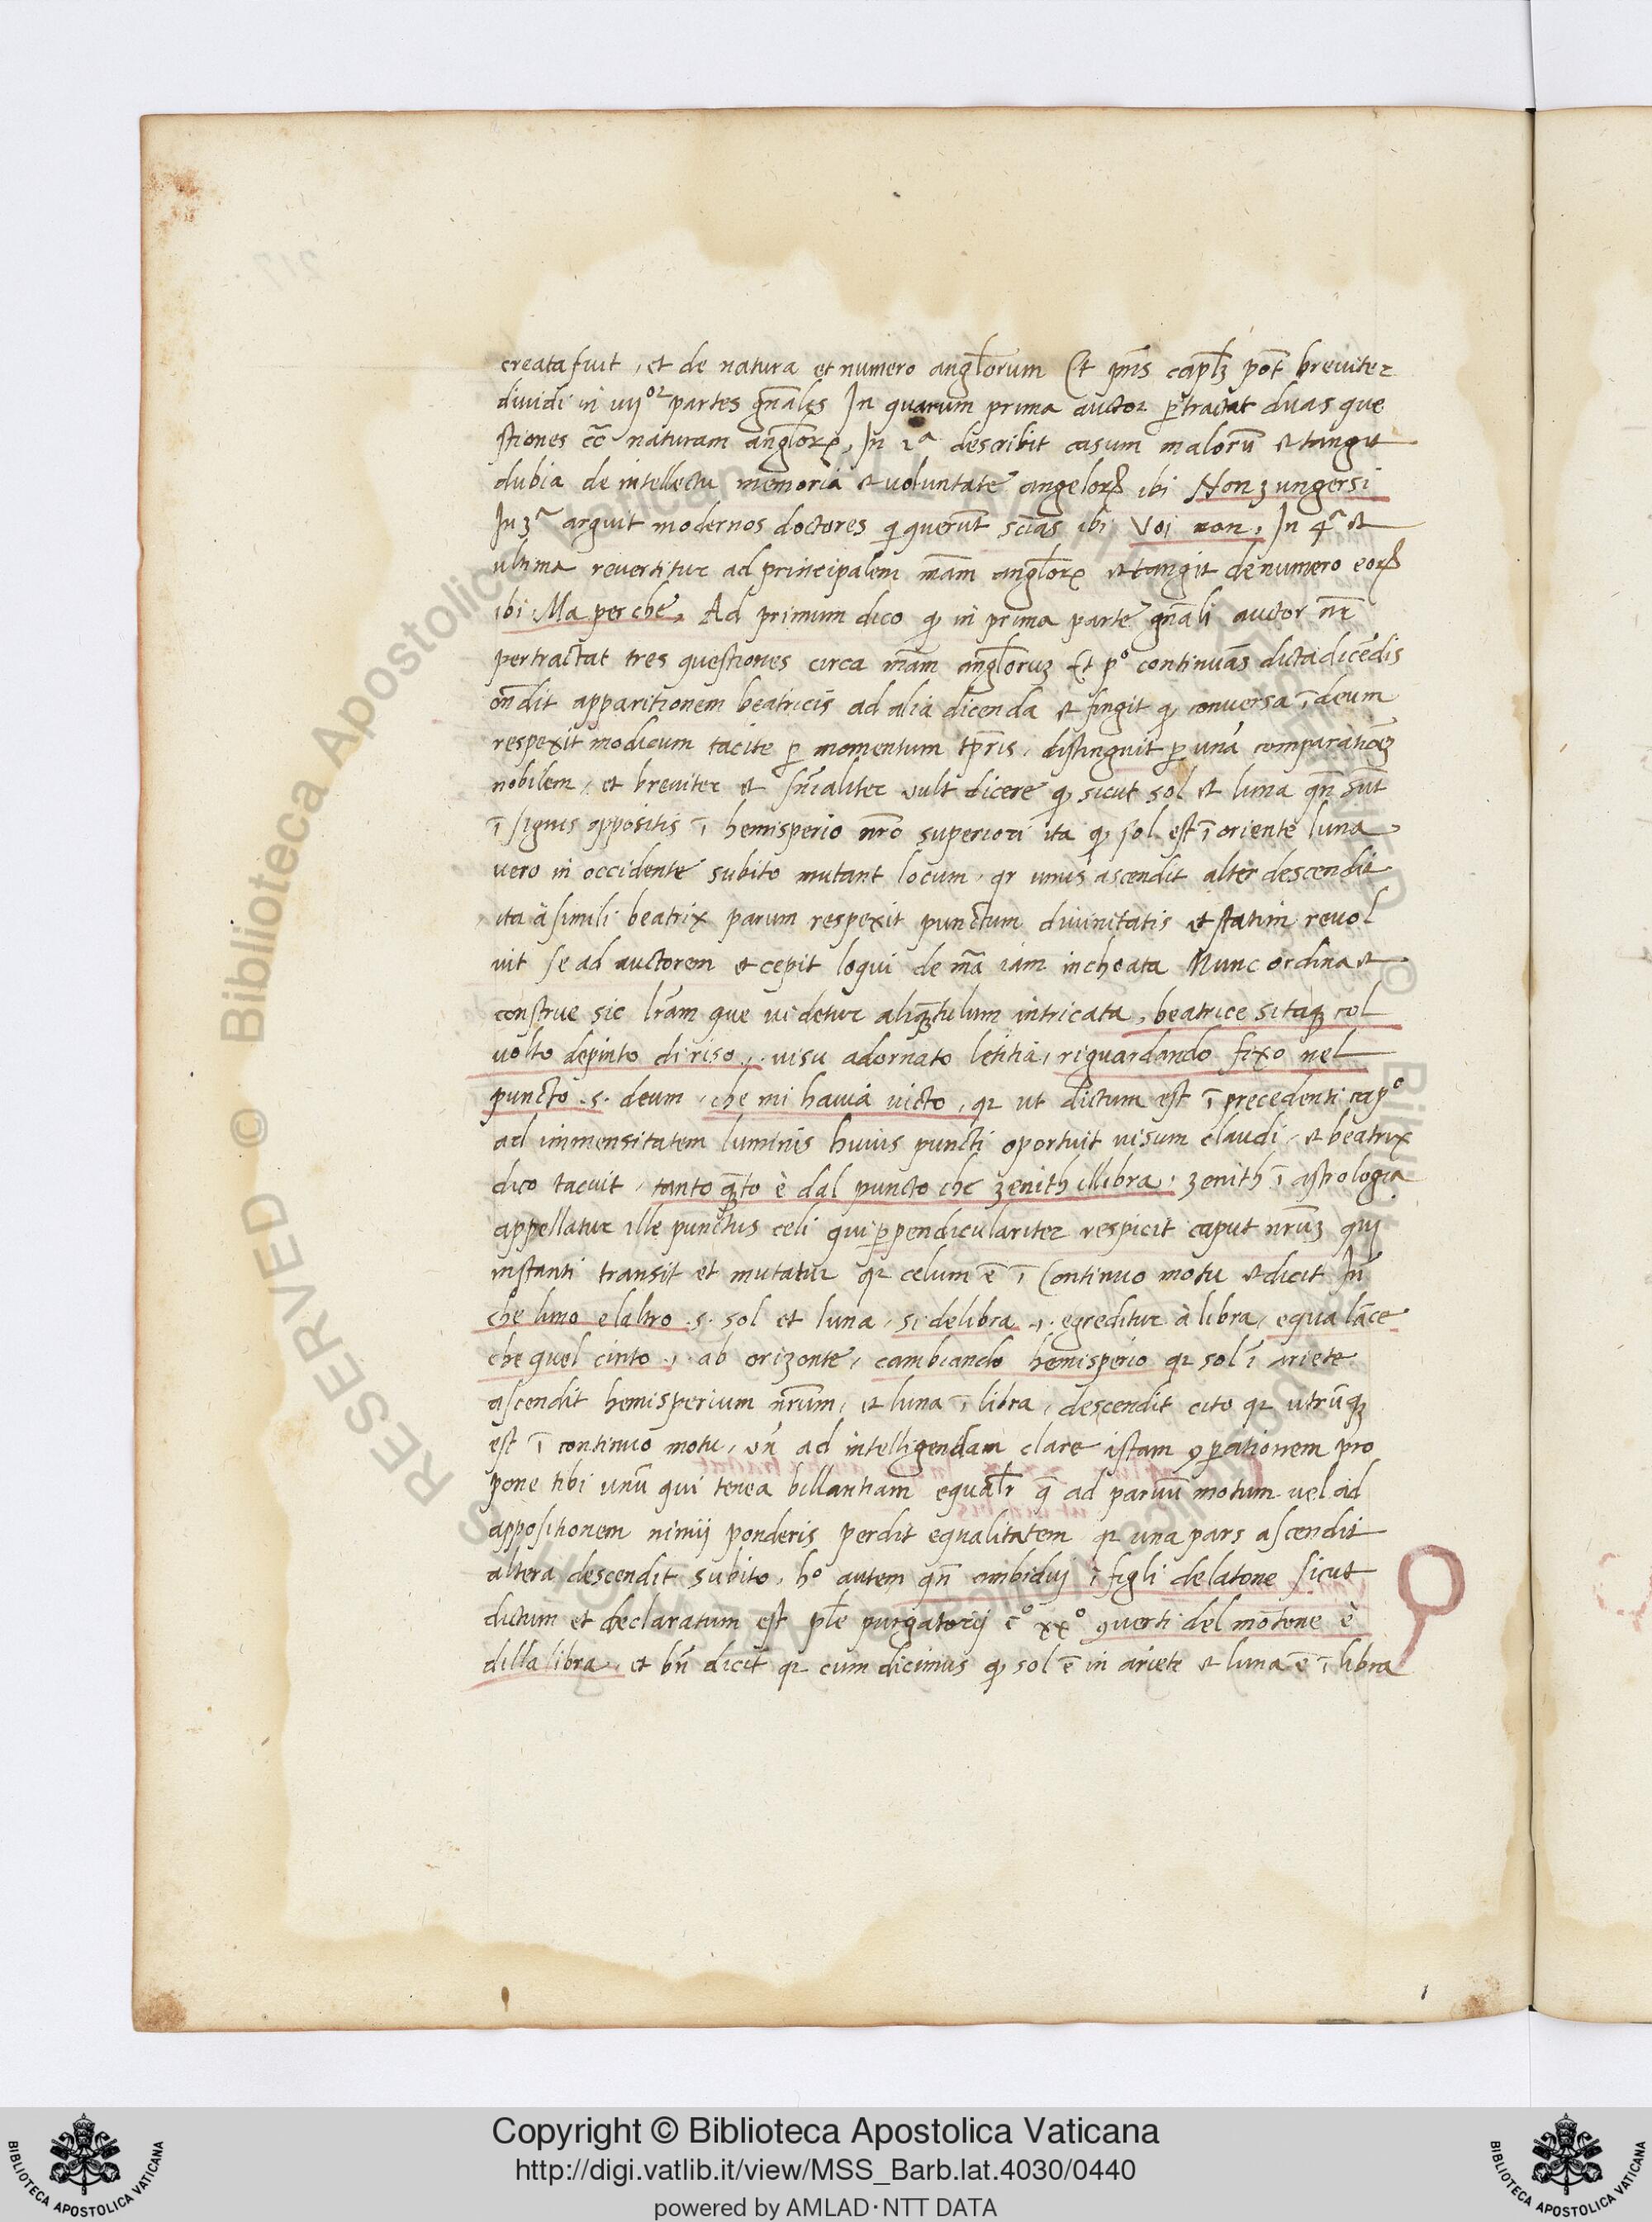 creata fuit, et de natura et numero angl̄orum Et pn̄s capl̄ꝫ pōt breviter
dividi in iiijᵒʳ partes gn̄ales In quarum prima auctor ꝑtractat duas que
stiones cc̄ naturam angl̄orꝝ, In 2ᵃ describit casum malorū et tangit
dubia de intellectu memoria et voluntate angelorꝝ ibi Non ʒungersi
In 3ᵃ arguit modernos doctores qͥ querūt sciās ibi Voi non, In 4ᵃ et
ultima revertitur ad principalem mām angl̄orꝝ et tangit de numero eorꝝ
ibi Ma perche, Ad primum dico ꝙ in prima parte gn̄ali auctor nr̄
pertractat tres questiones circa mām angl̄oruꝫ Et pᵒ continuās dicta dicēdis
on̄dit apparitionem beatricis ad alia dicenda et fingit ꝙ conversa ī deum
respexit modicum tacite ꝑ momentum tp̄ris, distinguit ꝑ unā comparatiōeꝫ
nobilem, et breviter et sn̄ialiter vult dicere ꝙ sicut sol et luna qn̄ sūt
ī signis oppositis ī hemisperio nr̄o superiori ita ꝙ sol est ī oriente luna
vero in occidente subito mutant locum, qr unus ascendit alter descendit
ita à simili beatrix parum respexit punctum divinitatis et statim revol
vit se ad auctorem et cepit loqui de mā iam inchoata Nunc ordina et
construe sic lr̄am que videtur aliqᷓtulum intricata, beatrice si taqꝫ col
volto depinto di riso, .. visu adornato letitia, riguardando fixo nel
puncto .s. deum, che mi havia victo, qr ut dictum est ī precedenti capᵒ
ad immensitatem luminis huius puncti oportuit visum claudi, et beatrix
dico tacuit, tanto qᷓto è dal puncto che ʒenith illibra, ʒenith ī astrologia
appellatur ille punctus celi qui ꝑpendiculariter respicit caput nr̄uꝫ qui
instanti transit et mutatur qr celum ē ī Continuo motu et dicit In
che luno e laltro .s. sol et luna, si delibra .i. egreditur à libra, equa lāce
che quel cinto .i. ab oriʒonte, cambiando hemisperio qr sol ī ariete
ascendit hemisperium nr̄um, et luna ī libra, descendit cito qr utrūqꝫ
est ī continuo motu, vn̄ ad intelligendam clare istam ꝯꝑationem pro
pone tibi unū qui tenea billantiam equalr̄ qᷓ ad parvū motum vel ad
appositionem nimij ponderis perdit equalitatem qr una pars ascendit
altera descendit subito, hᵒ autem qn̄ ambidui i figli de latone sicut
dictum et declaratum est pl̄e purgatorij cᵒ xxᵒ ꝯverti del montone è
dilla libra, et bn̄ dicit qr cum dicimus ꝙ sol ē in ariete et luna ē ī libra
RESERVED © Biblioteca Apostolica Vaticana
Copyright © Biblioteca Apostolica Vaticana
http://digi.vatlib.it/view/MSS_Barb.lat.4030/0440
powered by AMLAD·NTT DATA
BIBLIOTECA APOSTOLICA VATICANA
BIBLIOTECA APOSTOLICA VATICANA